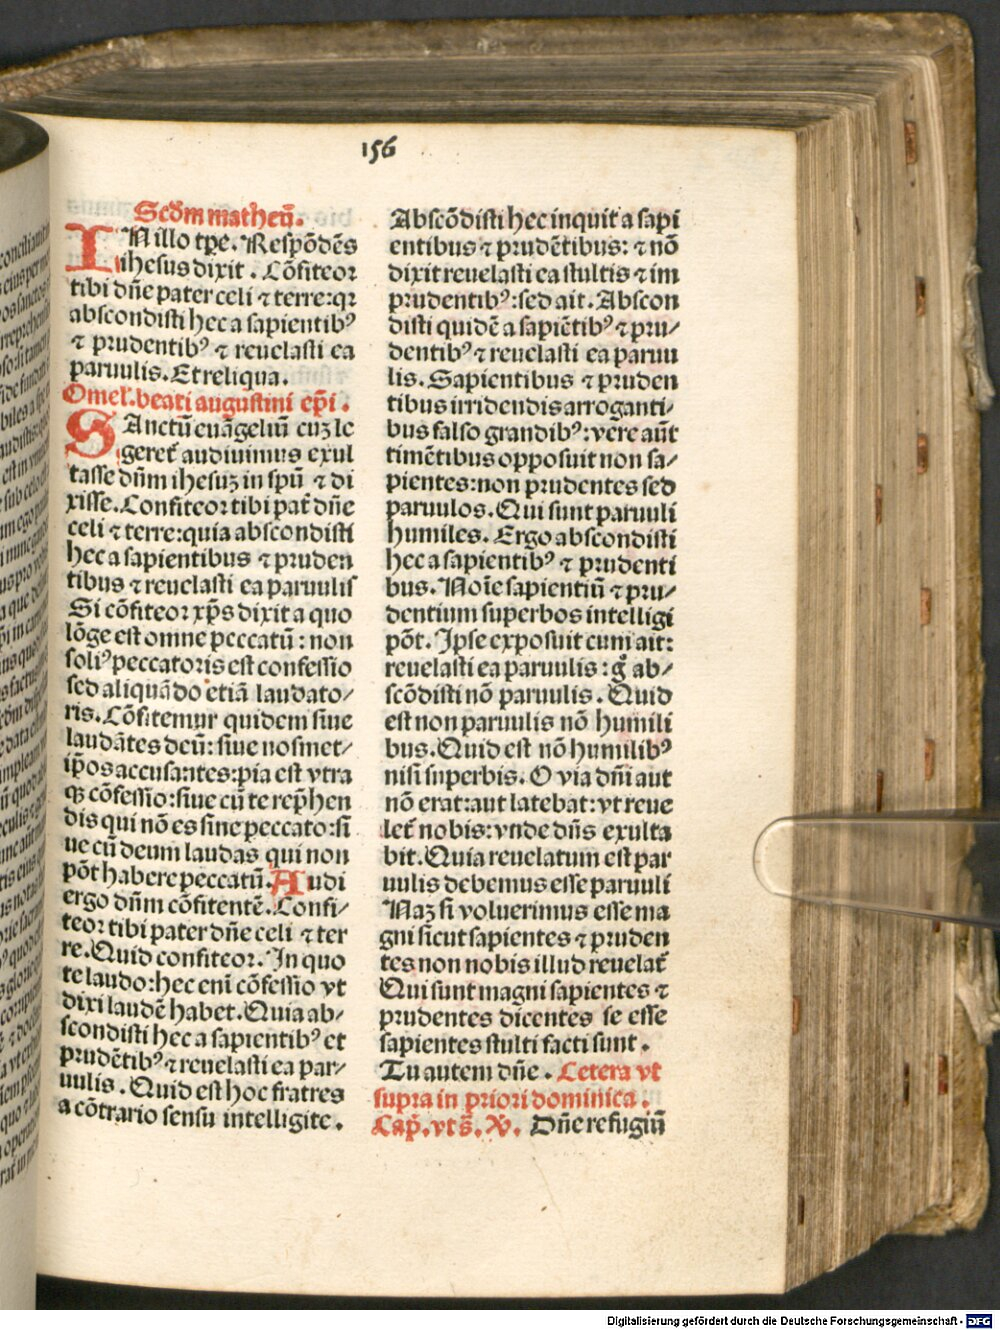 156
Secḋm matheū.
IN illo tꝑe. Respōdēs
ihesus dixit. Cōfiteor
tibi dn̄e pater celi ⁊ terre: qꝛ
abscondisti hec a sapientibꝰ
⁊ prudentibꝰ ⁊ reuelasti ea
paruulis. Et reliqua.
Omel'. beati augustini ep̄i.
SAnctū euāgeliū cuꝫ le
geret᷑ audiuimus exul
tasse dn̄m ihesuꝫ in spū ⁊ di
xisse. Confiteor tibi pat᷑ dn̄e
celi ⁊ terre: quia abscondisti
hec a sapientibus ⁊ pruden
tibus ⁊ reuelasti ea paruulis
Si cōfiteor xp̄s dixit a quo
lōge est omne peccatū: non
soliꝰ peccatoris est confessio
sed aliquādo etiā laudato/
ris. Cōfitemur quidem siue
laudātes deū: siue nosmet/
ip̄os accusantes: pia est vtra
qꝫ cōfessio: siue cū te rep̄hen
dis qui nō es sine peccato: si
ue cū deum laudas qui non
pōt habere peccatū. Audi
ergo dn̄m cōfitentē. Confi/
teor tibi pater dn̄e celi ⁊ ter
re. Quid confiteor. In quo
te laudo: hec eni cōfessio vt
dixi laudē habet. Quia ab/
scondisti hec a sapientibꝰ et
prudētibꝰ ⁊ reuelasti ea par/
uulis. Quid est hoc fratres
a cōtrario sensu intelligite.
Abscōdisti hec inquit a sapi
entibus ⁊ prudētibus: ⁊ nō
dixit reuelasti ea stultis ⁊ im
prudentibꝰ: sed ait. Abscon
disti quidē a sapiētibꝰ ⁊ pru/
dentibꝰ ⁊ reuelasti ea paruu
lis. Sapientibus ⁊ pruden
tibus irridendis arroganti/
bus falso grandibꝰ: vere aūt
timētibus opposuit non sa/
pientes: non prudentes sed
paruulos. Qui sunt paruuli
humiles. Ergo abscondisti
hec a sapientibꝰ ⁊ prudenti
bus. Noīe sapientiū ⁊ pru/
dentium superbos intelligi
pōt. Ipse exposuit cum ait:
reuelasti ea paruulis: gͦ ab/
scōdisti nō paruulis. Quid
est non paruulis nō humili
bus. Quid est nō humilibꝰ
nisi superbis. O via dn̄i aut
nō erat: aut latebat: vt reue
let᷑ nobis: vnde dn̄s exulta
bit. Quia reuelatum est par
uulis debemus esse paruuli
Naꝫ si voluerimus esse ma
gni sicut sapientes ⁊ pruden
tes non nobis illud reuelat᷑
Qui sunt magni sapientes ⁊
prudentes dicentes se esse
sapientes stulti facti sunt.
Tu autem dn̄e. Cetera vt
supra in priori dominica.
Cap̄. vt s̄. X. Dn̄e refugiū
Digitalisierung gefördert durch die Deutsche Forschungsgemeinschaft - DFG